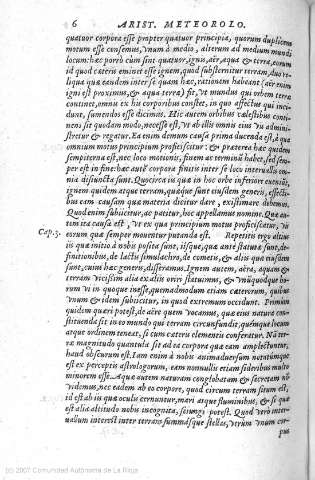 6 ARIST. METEOROLO.
quatuor corpora esse propter quatuor principia, quorum duplicem
motum esse censemus, vnum à medio, alterum ad medium mundi
locum: hæc porrò cùm sint quatuor, ignis, aër, aqua & terra, eorum
id quod cæteris eminet esse ignem, quod substernitur terram, duo re-
liqua quæ eandem inter se quam hæc, rationem habeant (aër enim
igni est proximus, & aqua terræ) sit, vt mundus qui orbem terræ
continet, omnis ex his corporibus constet, in quo affectus qui inci-
dunt, sumendos esse dicimus. Hic autem orbibus cælestibus conti-
nens sit quodam modo, necesse est, vt ab illis omnis eius vis admini-
stretur & regatur. Ea enim demum causa prima ducenda est, à qua
omnium motus principium proficiscitur: & præterea hæc quidem
sempiterna est, nec loco motionis, finem ac terminū habet, sed sem-
per est in fine: hæc autē corpora finitis inter se locis interuallis om-
nia disiuncta sunt. Quocirca iis quæ in hoc orbe inferiore eueniūt,
ignem quidem atque terram, quæque sunt eiusdem generis, effecti-
bus eam causam quæ materia dicitur dare, existimare debemus.
Quod enim subiicitur, ac patitur, hoc appellamus nomine. Quæ au-
tem ita causa est, vt ex qua principium motus proficiscatur, vis
eorum quæ semper mouentur putanda est. Repetitis ergo altius
Cap.3.
iis quæ initio à nobis posita sunt, iisque, quæ antè statuta sunt, de-
finitionibus, de lactis simulachro, de cometis, & aliis quæ eiusdem
sunt, cuius hæc generis, disseramus. Ignem autem, aëra, aquam &
terram vicissim alia ex aliis oriri statuimus, & vnūquodque ho-
rum vi in quoque inesse, quemadmodum etiam cæterorum, quibus
vnum & idem subiicitur, in quod extremum occidunt. Primùm
quidem quæri potest, de aëre quem vocamus, quæ eius natura con-
stituenda sit in eo mundo qui terram circunfundit, quémque locum
atque ordinem teneat, si cum cæteris elementis conferatur. Nā ter-
ræ magnitudo quantula sit ad ea corpora quæ eam amplectuntur,
haud obscurum est. Iam enim à nobis animaduersum notatúmque
est ex perceptis astrologorum, eam nonnullis etiam sideribus multo
minorem esse. Aquæ autem naturam conglobatam & secretam nō
videmus, nec eadem ab eo corpore, quod circum terram situm est,
id est ab iis quæ oculis cernuntur, mari atque fluminibus, & si qua
est alia altitudo nobis incognita, seiungi potest. Quod verò inter-
uallum interest inter terram summásque stellas, vtrum vnum cor-
pus
(c) 2007 Comunidad Autónoma de La Rioja